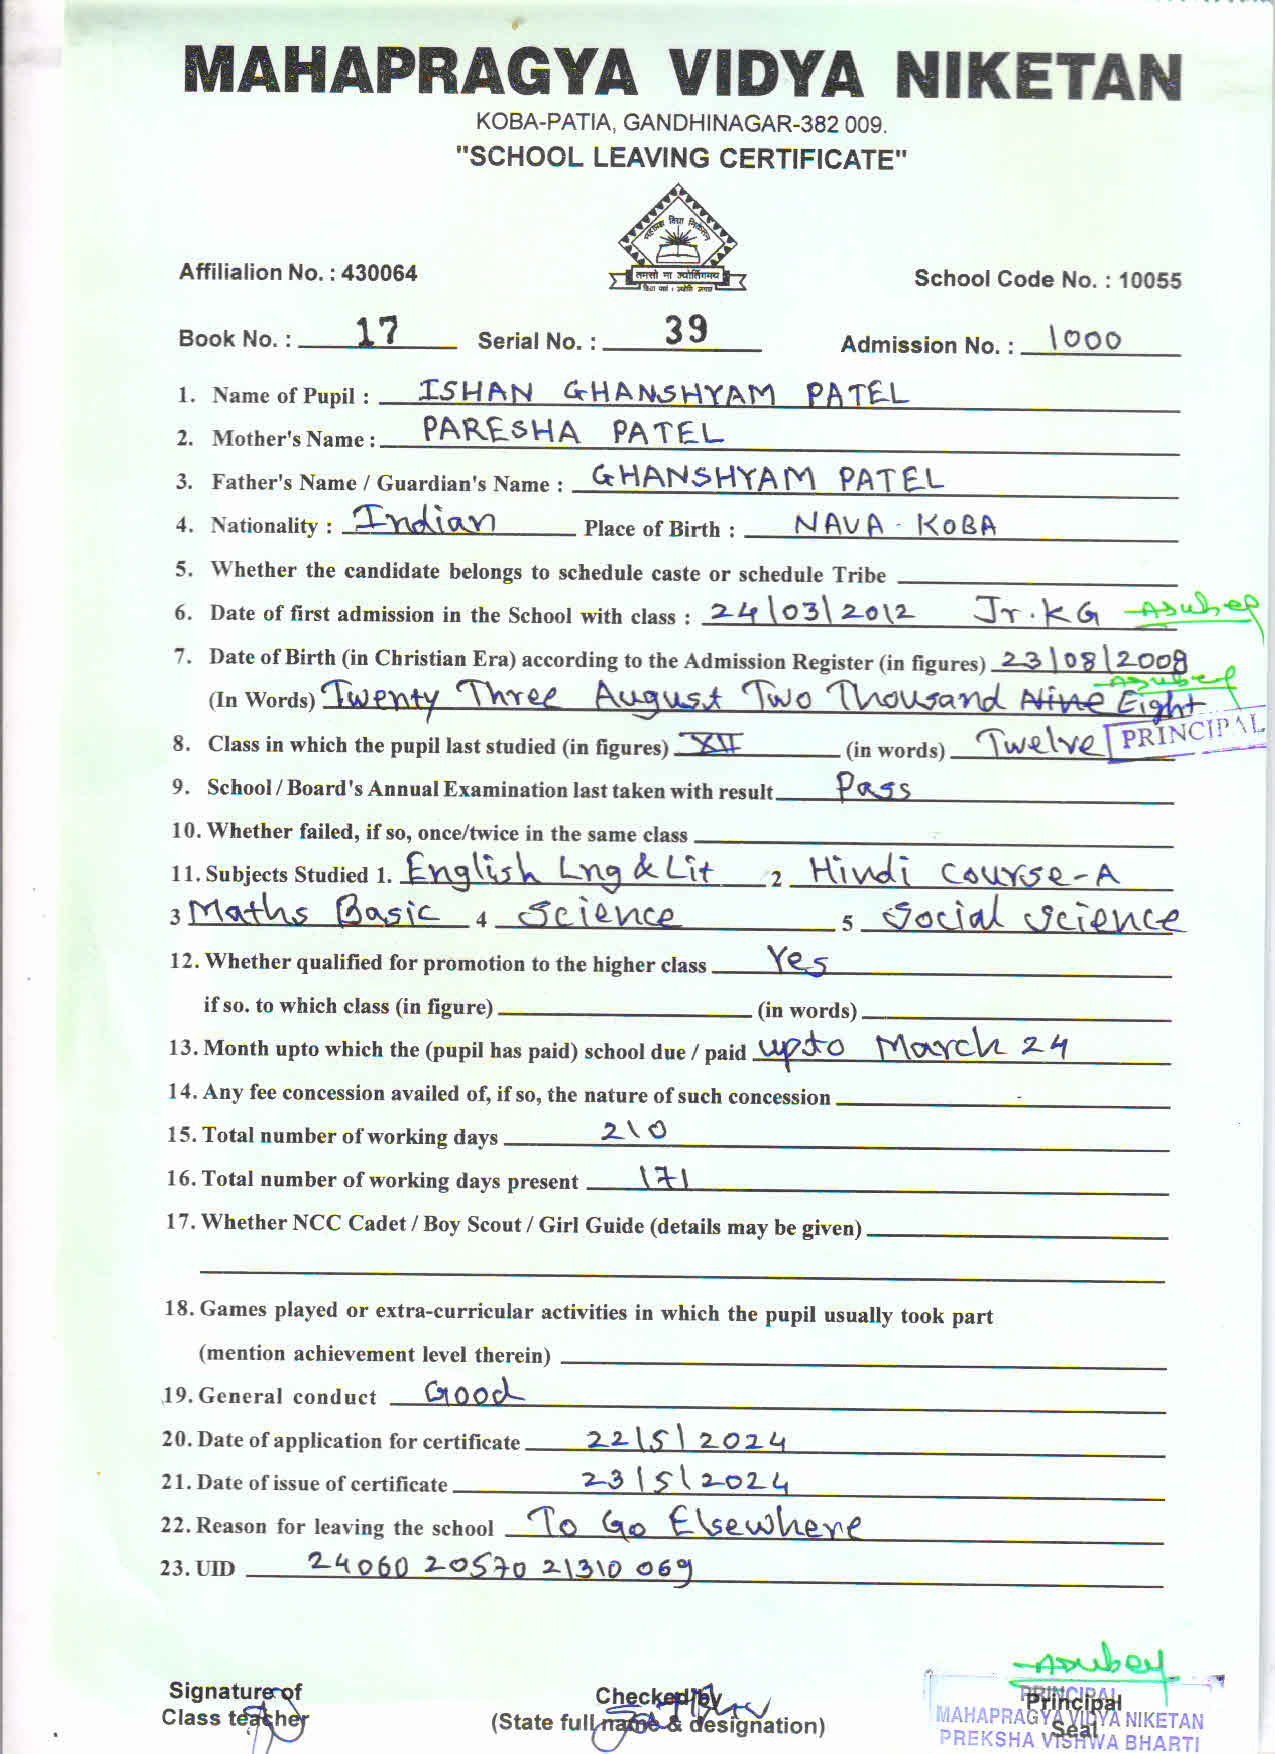 MAHAPRAGYA VIDYA NIKETAN
KOBA-PATIA, GANDHINAGAR-382 009.
"SCHOOL LEAVING CERTIFICATE"
महाप्रज्ञ विद्या निकेतन
तमसो मा ज्योतिर्गमय
Affilialion No. : 430064
School Code No. : 10055
Book No. : 17 Serial No. : 39 Admission No. : 1000
1. Name of Pupil : ISHAN GHANSHYAM PATEL
2. Mother's Name : PARESHA PATEL
3. Father's Name / Guardian's Name : GHANSHYAM PATEL
4. Nationality : Indian Place of Birth : NAVA-KOBA
5. Whether the candidate belongs to schedule caste or schedule Tribe
6. Date of first admission in the School with class : 24/03/2012 Jr.KG Adubey
7. Date of Birth (in Christian Era) according to the Admission Register (in figures) 23/08/2008
Adubey
(In Words) Twenty Three August Two Thousand Nine Eight
8. Class in which the pupil last studied (in figures) XII (in words) Twelve PRINCIPAL
9. School / Board's Annual Examination last taken with result Pass
10. Whether failed, if so, once/twice in the same class
11. Subjects Studied 1. English Lng & Lit 2 Hindi Course-A
3 Maths Basic 4 Science 5 Social Science
12. Whether qualified for promotion to the higher class Yes
if so. to which class (in figure) (in words)
13. Month upto which the (pupil has paid) school due / paid upto March 24
14. Any fee concession availed of, if so, the nature of such concession
15. Total number of working days 210
16. Total number of working days present 171
17. Whether NCC Cadet / Boy Scout / Girl Guide (details may be given)
18. Games played or extra-curricular activities in which the pupil usually took part
(mention achievement level therein)
19. General conduct Good
20. Date of application for certificate 22/5/2024
21. Date of issue of certificate 23/5/2024
22. Reason for leaving the school To Go Elsewhere
23. UID 24060 20570 21310 069
Adubey
Signature of
Class teacher
Checked by
(State full name & designation)
PRINCIPAL
Principal
MAHAPRAGYA VIDYA NIKETAN
Seal
PREKSHA VISHWA BHARTI